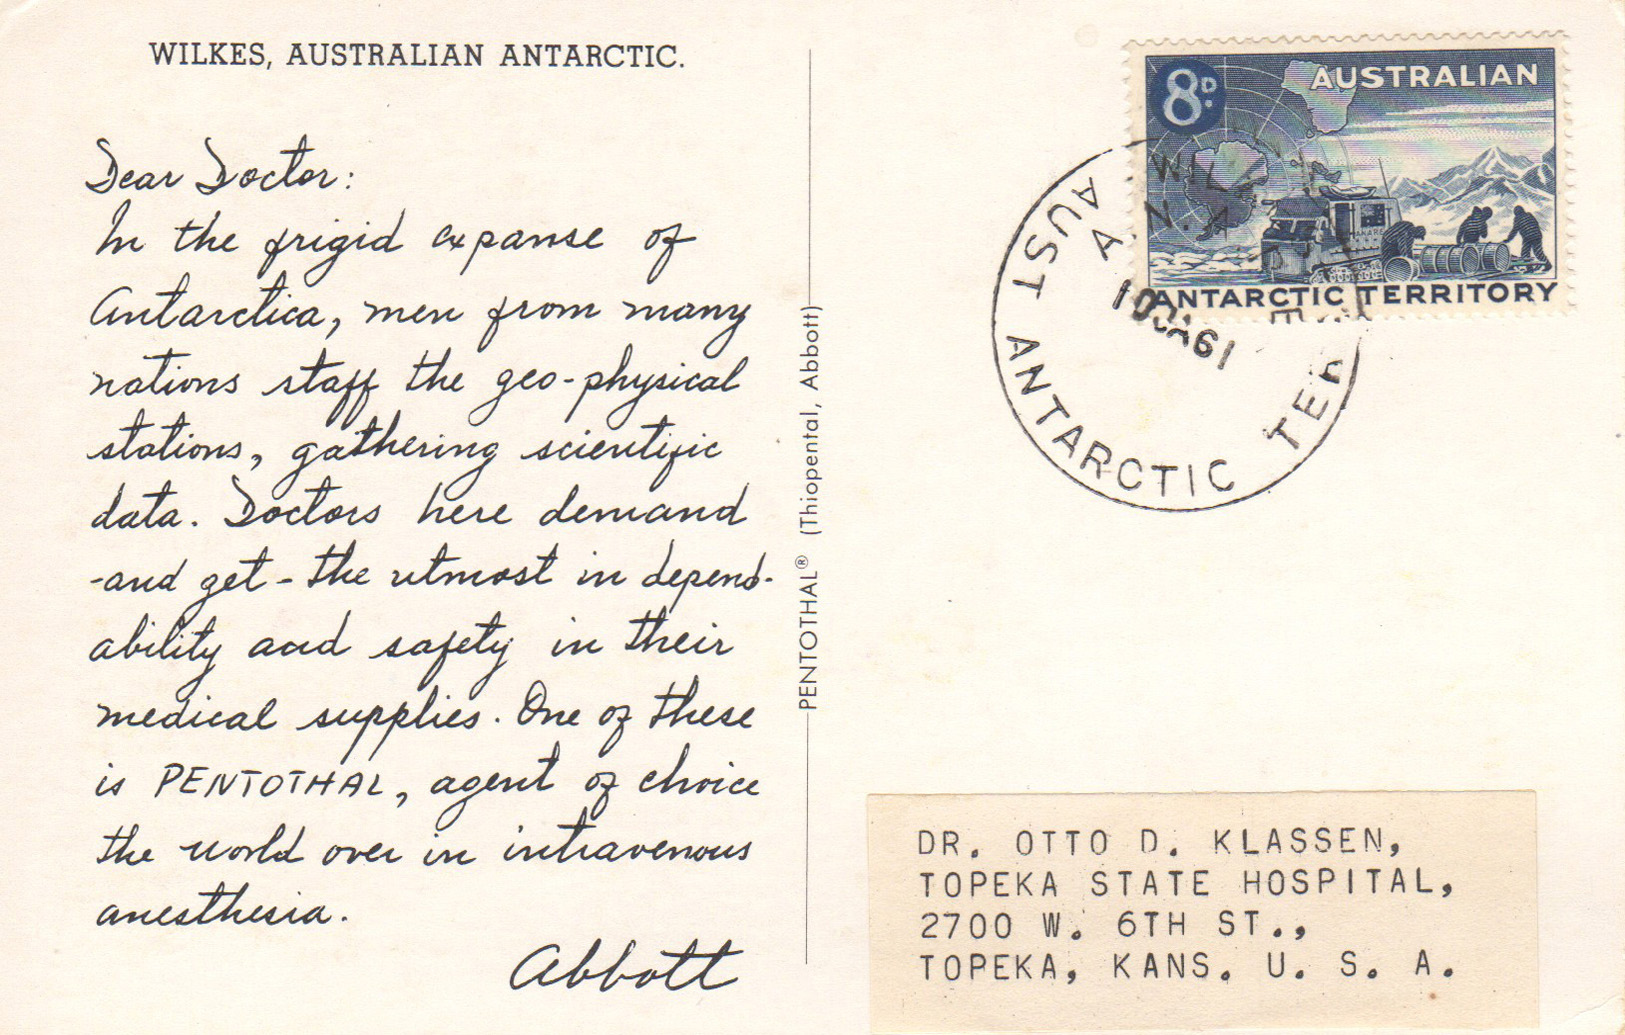 WILKES, AUSTRALIAN ANTARCTIC.
Dear Doctor:
In the frigid expanse of
Antarctica, men from many
nations staff the geo-physical
stations, gathering scientific
data. Doctors here demand
-and get- the utmost in depend-
ability and safety in their
medical supplies. One of these
is PENTOTHAL, agent of choice
the world over in intravenous
anesthesia.
Abbott
PENTOTHAL® (Thiopental, Abbott)
8D.
AUSTRALIAN
ANTARCTIC TERRITORY
WILK
A.N.A.R.E
10 JA 61
AUST ANTARCTIC TER
DR. OTTO D. KLASSEN,
TOPEKA STATE HOSPITAL,
2700 W. 6TH ST.,
TOPEKA, KANS. U. S. A.